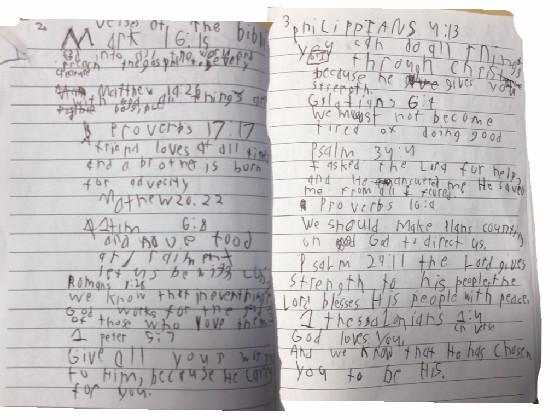 2. verses of The bible
Mark 16:15
Go into all the world and
preach the gospel to every
Matthew 19:26
with all things are
Proverbs 17:17
A friend loves at all times
and a brother is born
for adversity
Mathew 20.22
1 tim 6:8
and have food
and raiment
let us be with
Romans 8:28
we know that in everything
God works for the good
of those who love them
1 peter 5:7
Give all your
to Him, because He cares
for you.
3 philippians 4:13
You can do all things
through christ
because he gives you
strength.
Galatians 6:9
We must not become
tired of doing good
Psalm 34:4
I asked the Lord for help
and He answered me He saved
me from all I feared
Proverbs 16:9
We should make plans counting
on God to direct us.
Psalm 29:11 the Lord gives
strength to his people. the
Lord blesses His people with peace.
1 thessalonians 1:4
ch verse
God loves you.
And we know that He has chosen
you to be His.